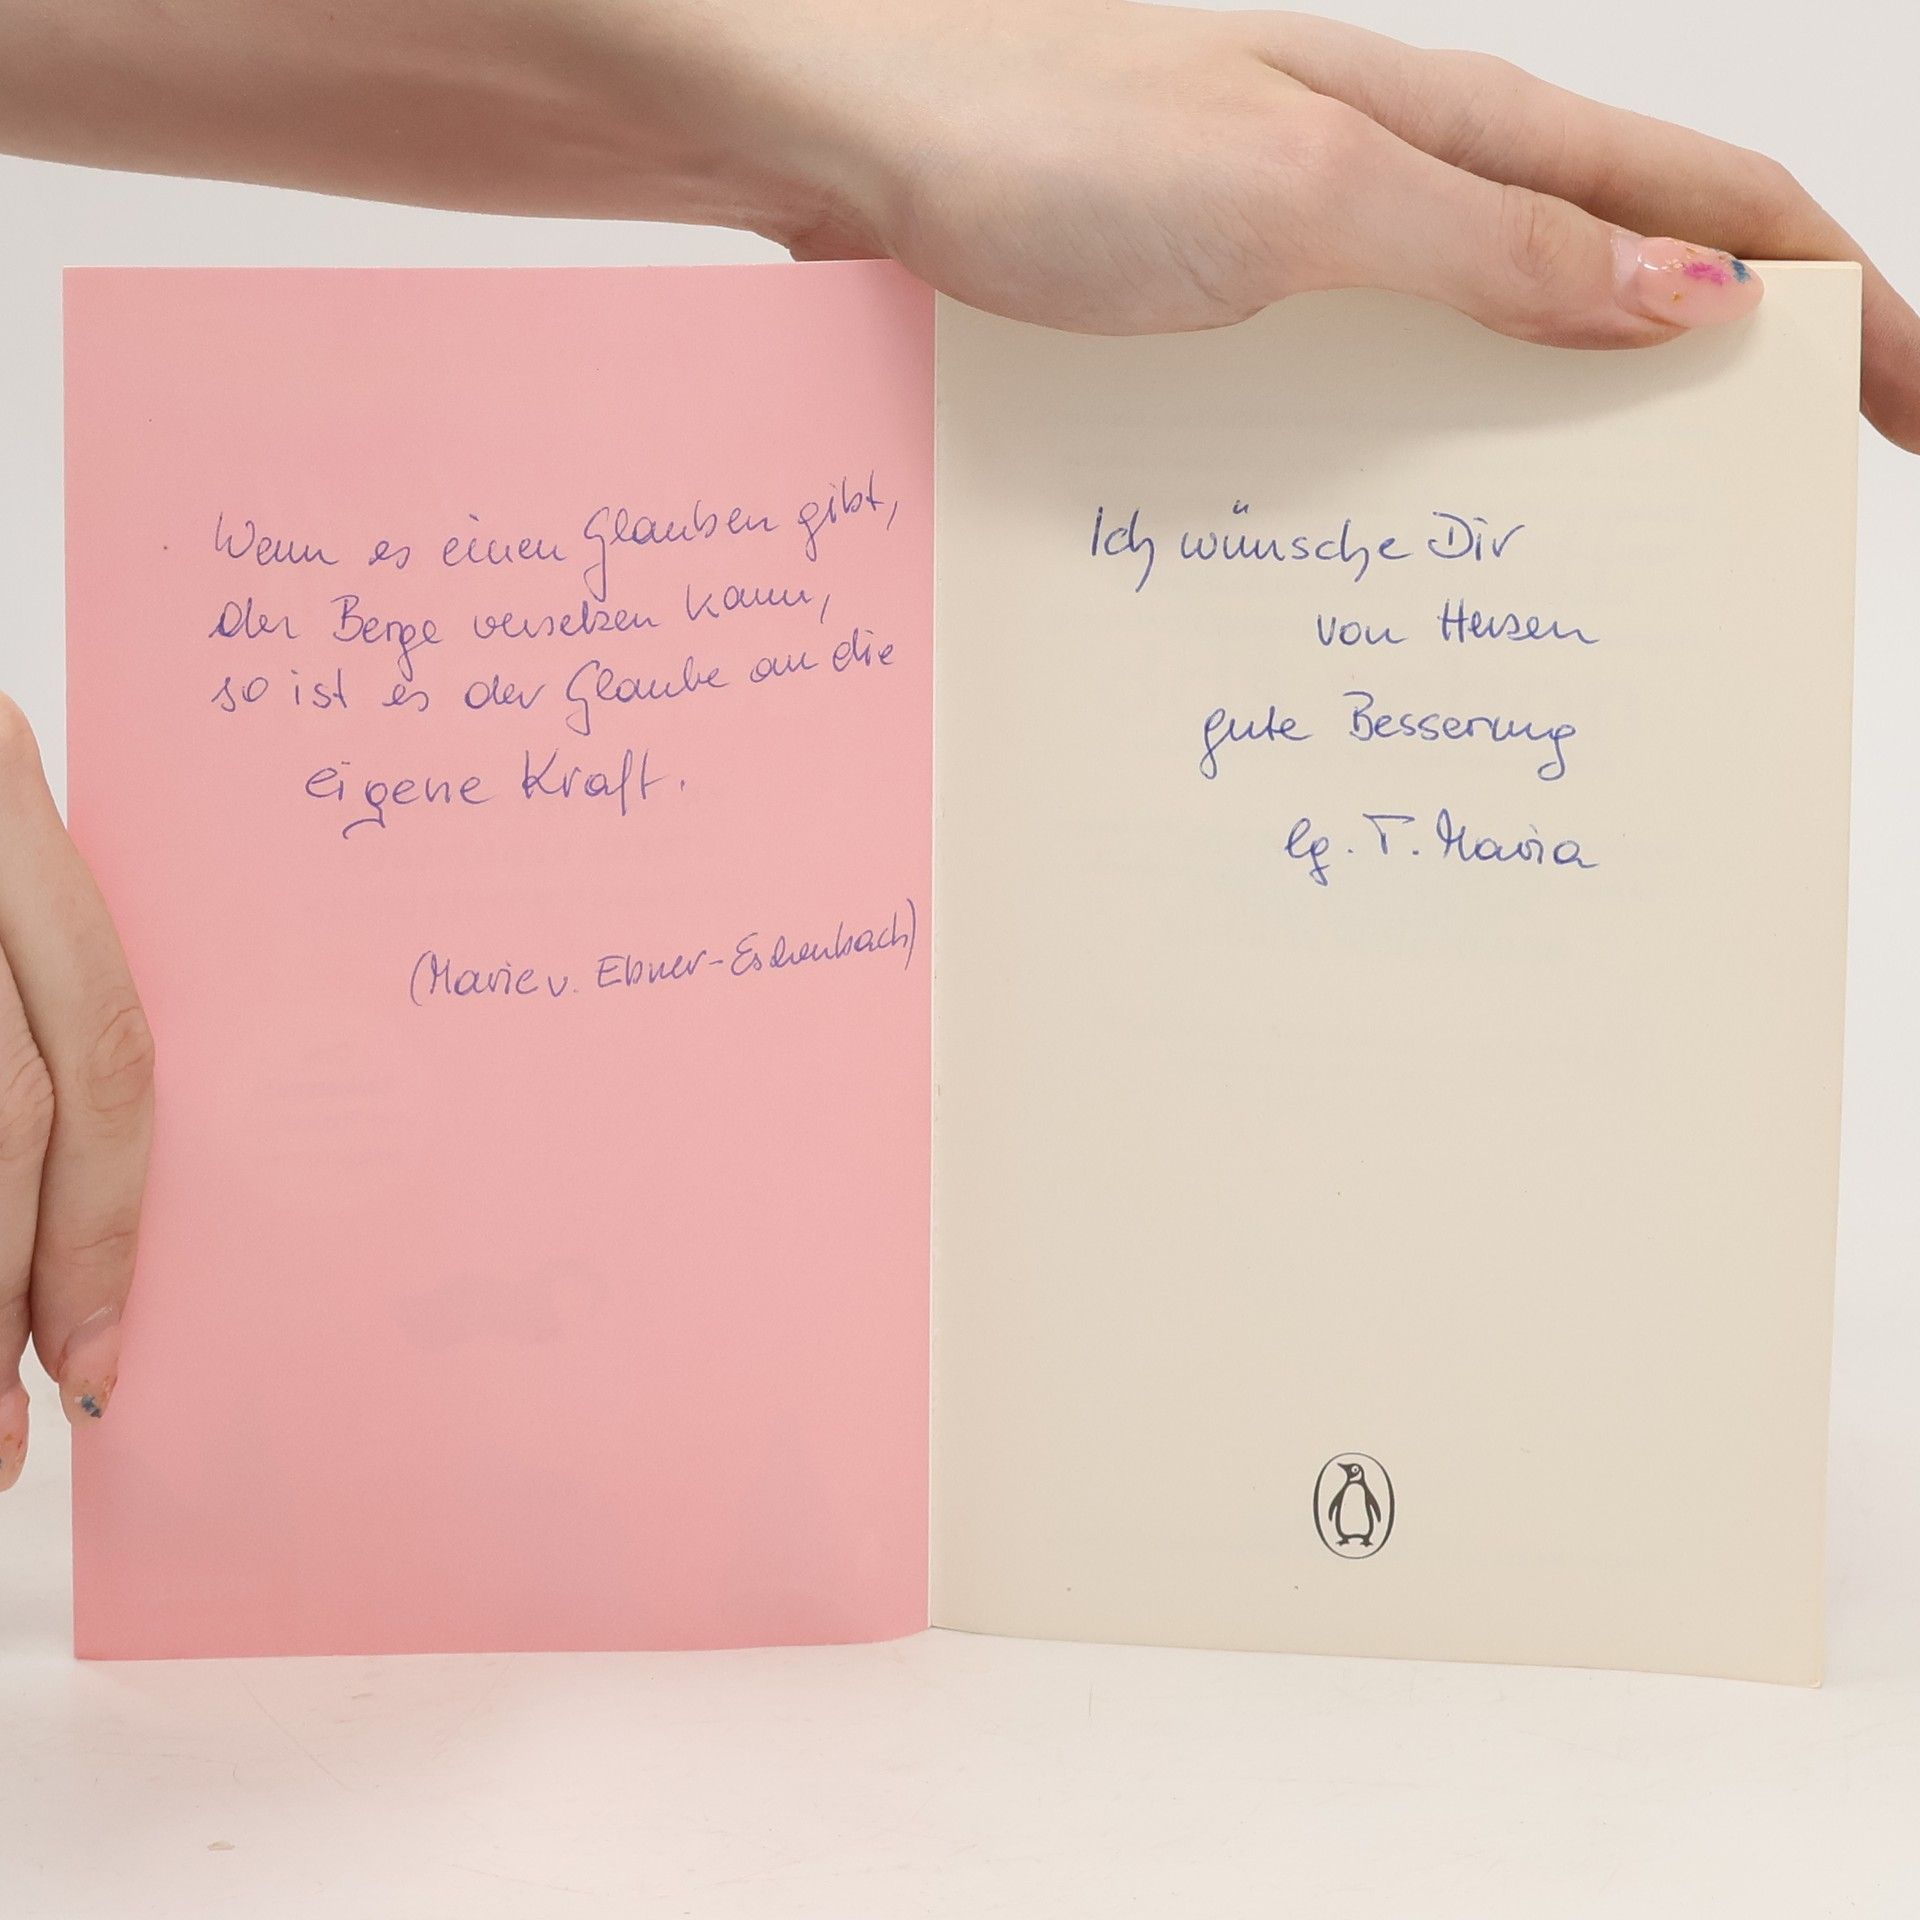 Wenn es einen Glauben gibt,
der Berge versetzen kann,
so ist es der Glaube an die
eigene Kraft.
(Marie v. Ebner-Eschenbach)
Ich wünsche Dir
von Herzen
gute Besserung
lg. T. Maria